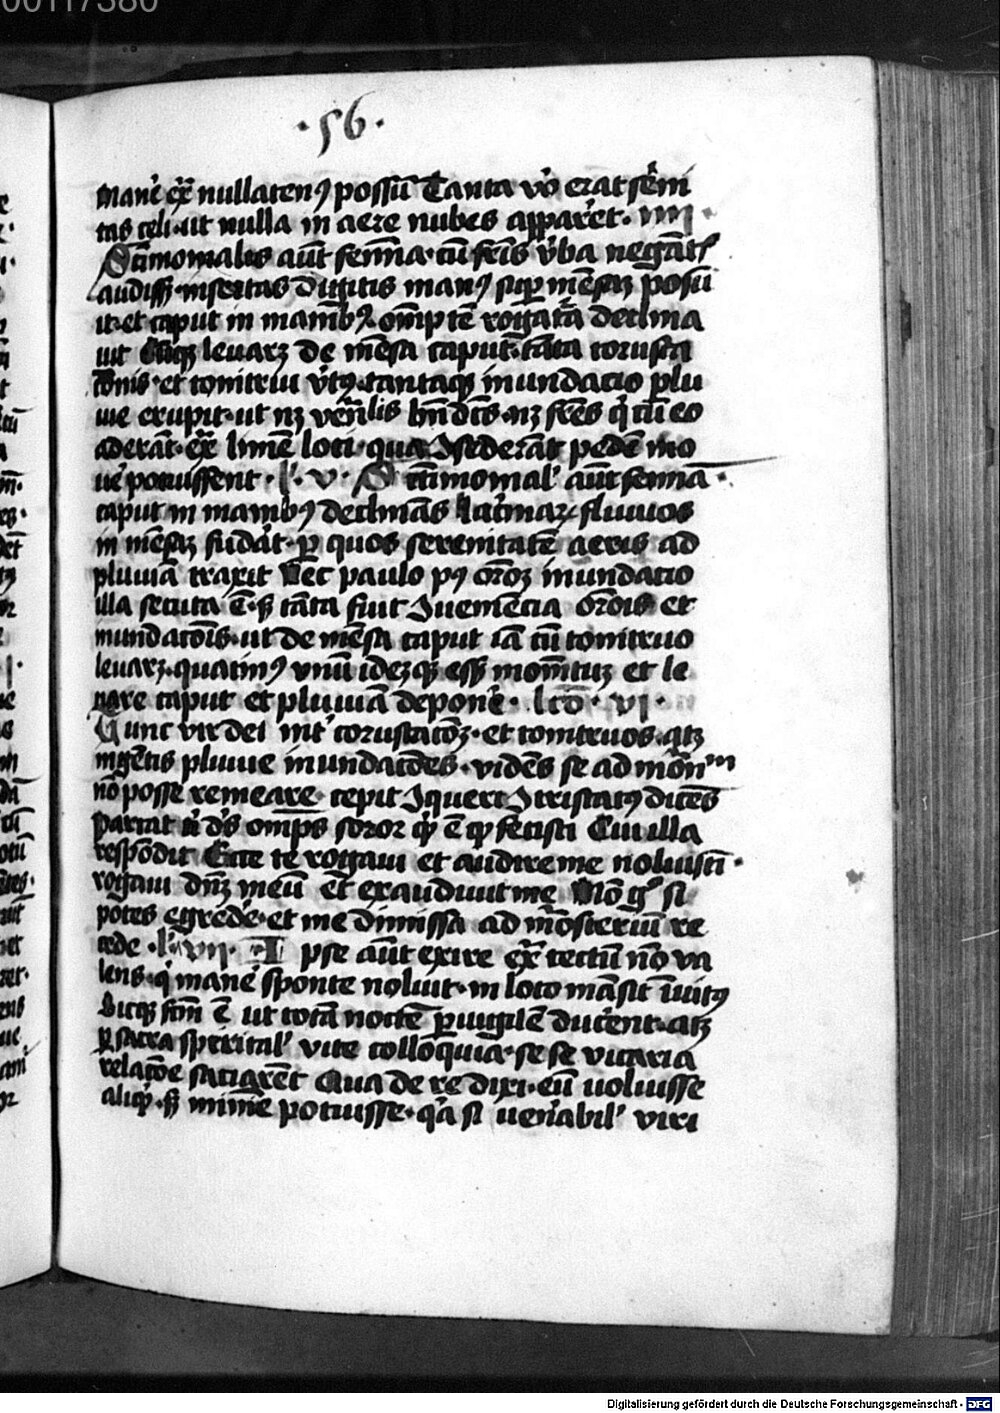 00117380
·56·
manē ex̄ nullaten⁹ possū Tanta v̊o erat sēni
tas celi·ut nulla in aere nubes appar̄et· iiii·
Sc̄imonialis aūt femīa·cū frīs v̄ba negāt⁹
audiss̄ insertas digitis man⁹ sup mēsaꝫ posu
it·et caput in manib⁹·om̄ptē rogatā declina
uit Cūqꝫ leuarꝫ de mēsa caput·tāta corusca
cōnis·et tonitrui v̄t⁹·tantaqꝫ inundacio plu
uie erupit·ut nꝫ ven̄lis bn̄dc̄s·nꝫ fr̄es q̄ cū eo
aderāt·ex̄ limē loci·qua ɔsederāt pedē mo
uē potuissent·l̄·v·Sc̄timonial' aūt femīa·
caput in manib⁹ declinās lac̄maꝝ fluuios
in mēsaꝫ fudāt·p̄ quos serenitatē aeris ad
pluuiā traxit Nec paulo p⁹ or̄oꝫ inundacio
illa secuta ē·sꝫ tāta fuit ɔueniēcia or̄ois et
inundacōis·ut de mēsa caput iā cū tonitruo
leuarꝫ·quatin⁹ vnū ideꝫqꝫ ess̄ momētuꝫ et le
uare caput et pluuiā deponē· lcō· vi·
Tunc vir dei int̄ coruscacōꝫ·et tonitruos·atqꝫ
ingētis pluuie inundacōes·vidēs se ad mōn̄ᵐ
nō posse remeare·cepit ɔqueri ɔtristat⁹ dicēs
Parcat t̄ ds̄ om̄ps soror qͥ ē qͥ fecisti Cui illa
respōdit Ecce te rogaui et audire me noluisti·
rogaui dn̄ꝫ meū et exaudiuit me Mō gͦ si
potes egredē·et me dimissa ad mōsteriū re
cede·l̄·vii· Ipse aūt exire ex̄ tectū nō va
lens·qͥ manē sponte noluit·in loco māsit īuit⁹
Sicqꝫ fc̄m ē ut totā noctē p̄uigilē ducēnt·atqꝫ
p̄ sacra spirital' vite colloquia·se se vicaria
relacōe saciarēt Qua de re dixi·eū uoluisse
aliqͥ·sꝫ minīe potuisse·qͣa si uen̄abil' viri
Digitalisierung gefördert durch die Deutsche Forschungsgemeinschaft - DFG